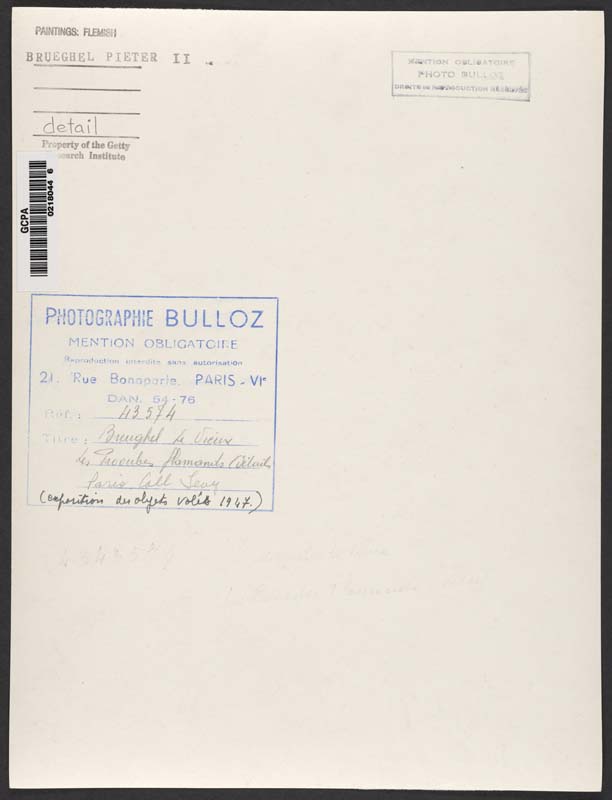 PAINTINGS: FLEMISH
BRUEGHEL PIETER II
detail
Property of the Getty
Research Institute
GCPA
0218044 6
MENTION OBLIGATOIRE
PHOTO BULLOZ
DROITS DE REPRODUCTION RÉSERVÉS
PHOTOGRAPHIE BULLOZ
MENTION OBLIGATOIRE
Reproduction interdite sans autorisation
21. Rue Bonaparte, PARIS-VIe
DAN. 54-76
Réf.: 43574
Titre: Breughel Le Vieux
Les Proverbes flamands (détail)
Paris Coll Levy
(exposition des objets volés 1947.)